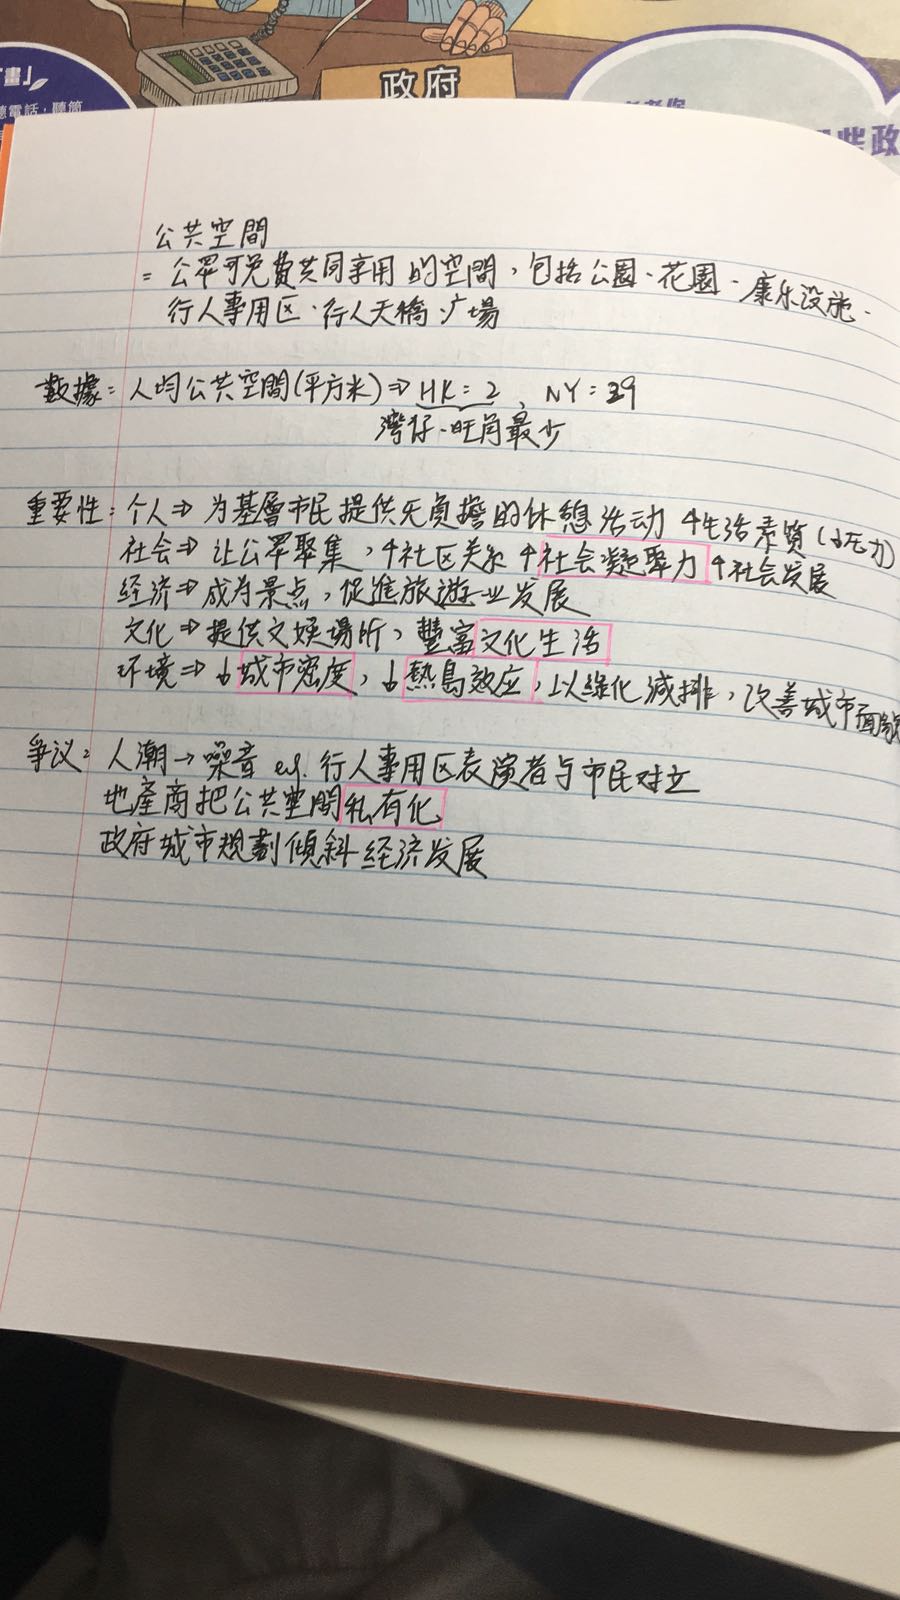 政府
畫」
聽電話，聽筒
些政
公共空間
= 公眾可免費共同享用的空間，包括公園、花園、康乐设施、
行人專用区、行人天橋、广場
數據：人均公共空間(平方米)⇒ HK = 2、NY = 39
灣仔、旺角最少
重要性：个人⇒ 为基層市民提供无負擔的休憩活动 ↑生活素質(↓压力)
社会⇒ 让公眾聚集，↑社区关系 ↑社会凝聚力 ↑社会发展
经济⇒ 成为景点，促進旅遊业发展
文化⇒ 提供文娛場所，豐富文化生活
环境⇒ ↓城市密度，↓熱島效应，以綠化減排，改善城市面貌
爭议：人潮→噪音 e.g. 行人專用区表演者与市民对立
地產商把公共空間私有化
政府城市規劃傾斜经济发展